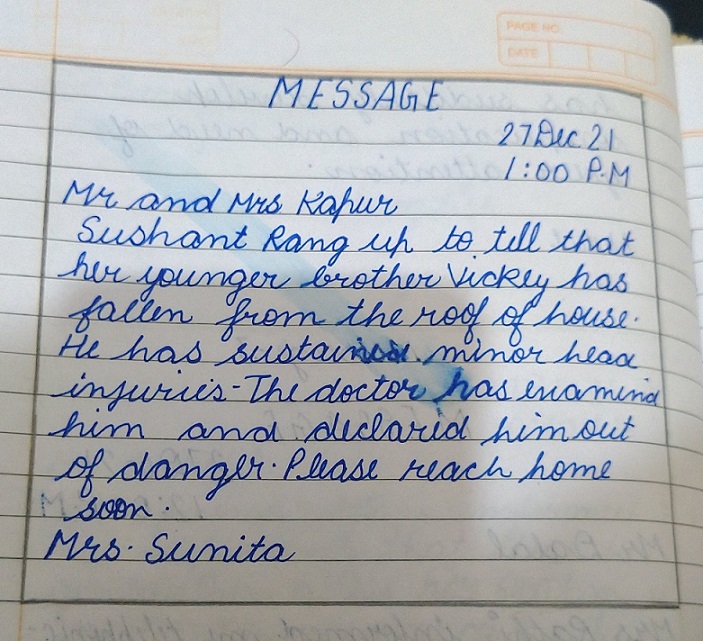 PAGE NO:
DATE
MESSAGE
27 Dec 21
1:00 P.M
Mr and Mrs Kapur
Sushant Rang up to tell that
her younger brother Vickey has
fallen from the roof of house.
He has sustained minor head
injuries. The doctor has examind
him and declared him out
of danger. Please reach home
soon.
Mrs. Sunita